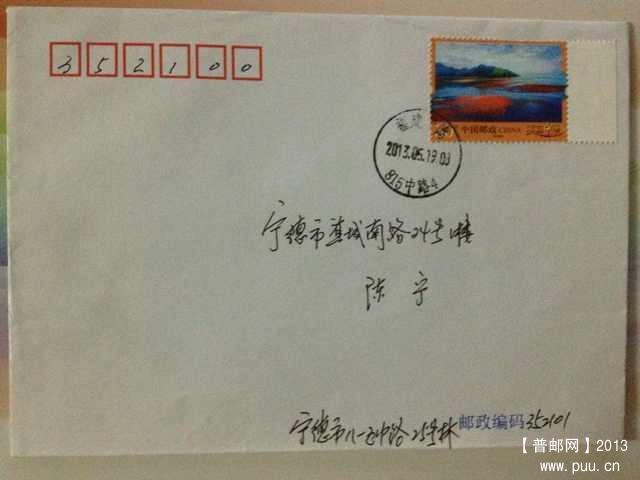 352100
中国邮政 CHINA
福建
2013.05.19.09
815中路4
宁德市蕉城南路24号楼
陈宁
宁德市八一五中路25号林 邮政编码 352101
【普邮网】2013
www.puu.cn